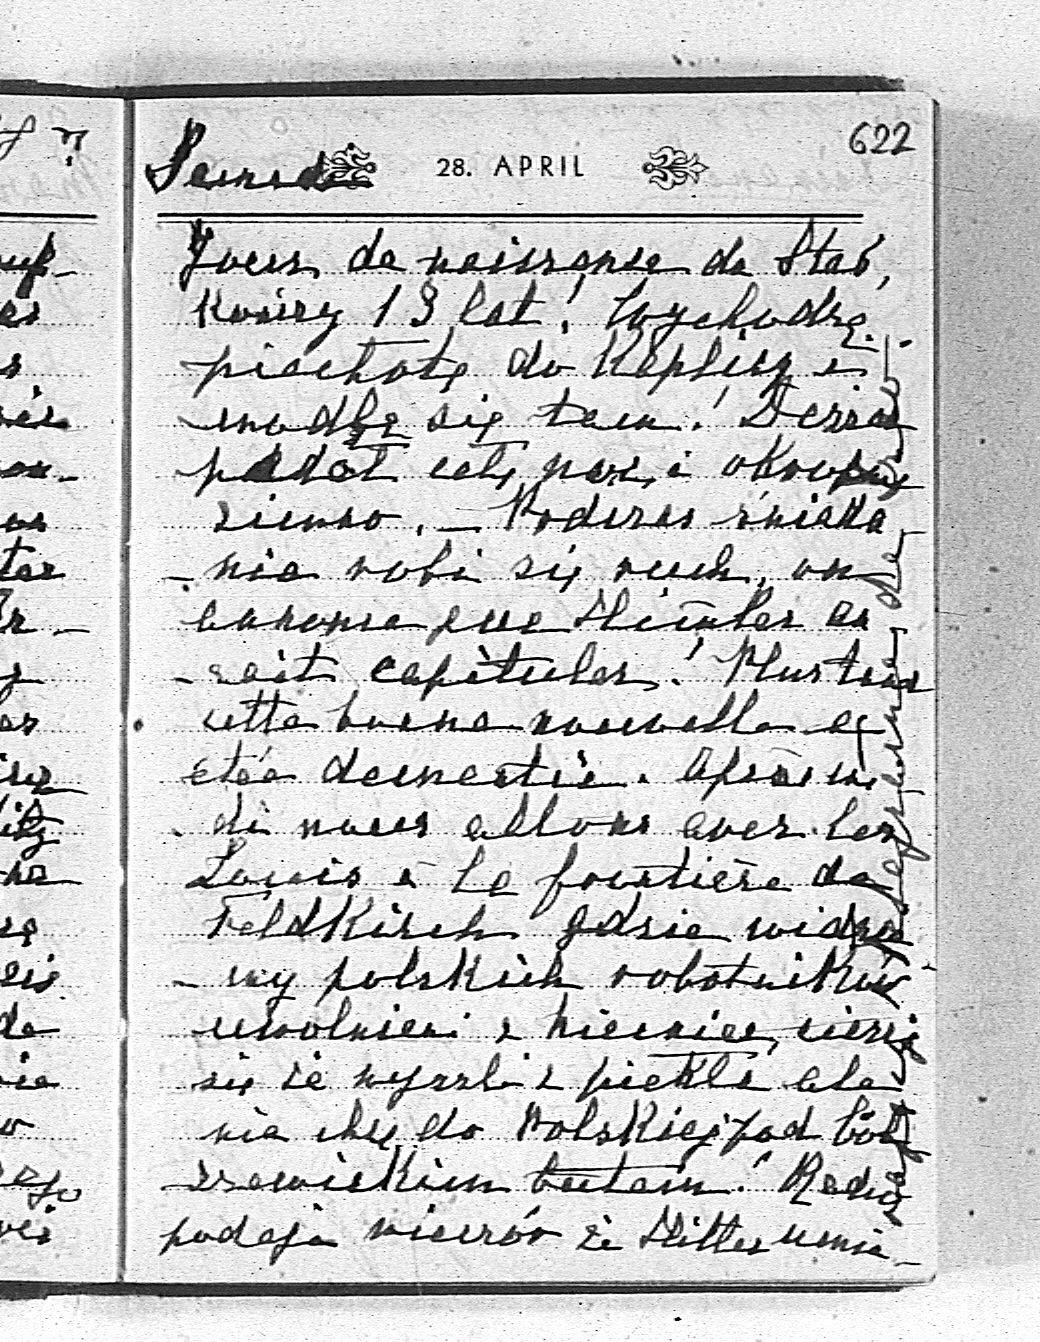 622
Samedi 28. APRIL
Jour de naissance de Staś,
Kończy 13 lat! Wychodzę
piechotą do Kaplicy i
modlę się tam! Deszcz
padał całą noc i okropnie
zimno. — Podczas śniada-
nia robi się ruch, on
annonce que Himler au-
rait capitulé! Plus tard
cette bonne nouvelle a
étée dementie. Après mi-
di nous allons avec les
Louis à la frontière de
Feldkirch gdzie widzi-
my polskich robotników
uwolnieni z niemiec, cieszą
się że wyszli z piekła ale
nie chcą do Polski pod bol-
szewickim butem! Radio
podaje wieczór że Hitler umie-